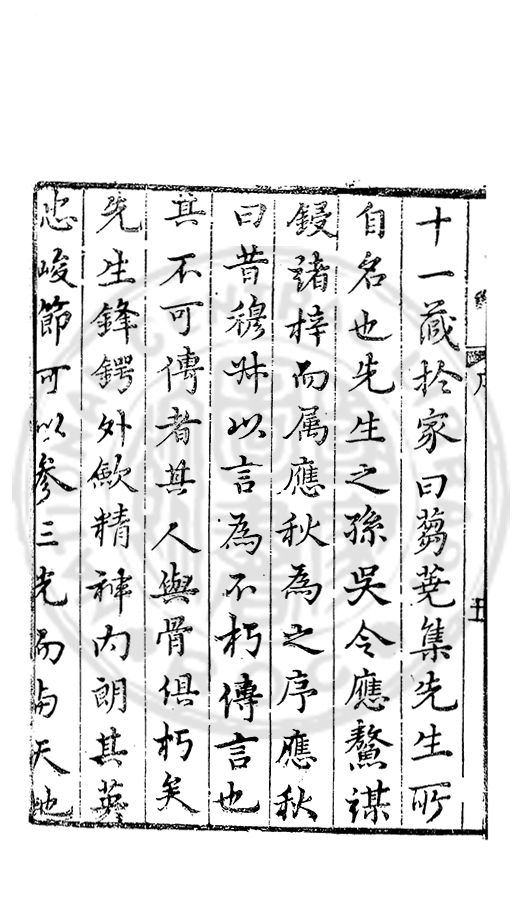 十一藏扵家曰蒭蕘集先生所
自名也先生之孫吳令應鰲謀
鋟諸梓而属應秋為之序應秋
曰昔穆叔以言為不朽傳言也
其不可傳者其人與骨俱朽矣
先生鋒鍔外歛精神内朗其英
忠峻節可以參三光而与天地
序
五